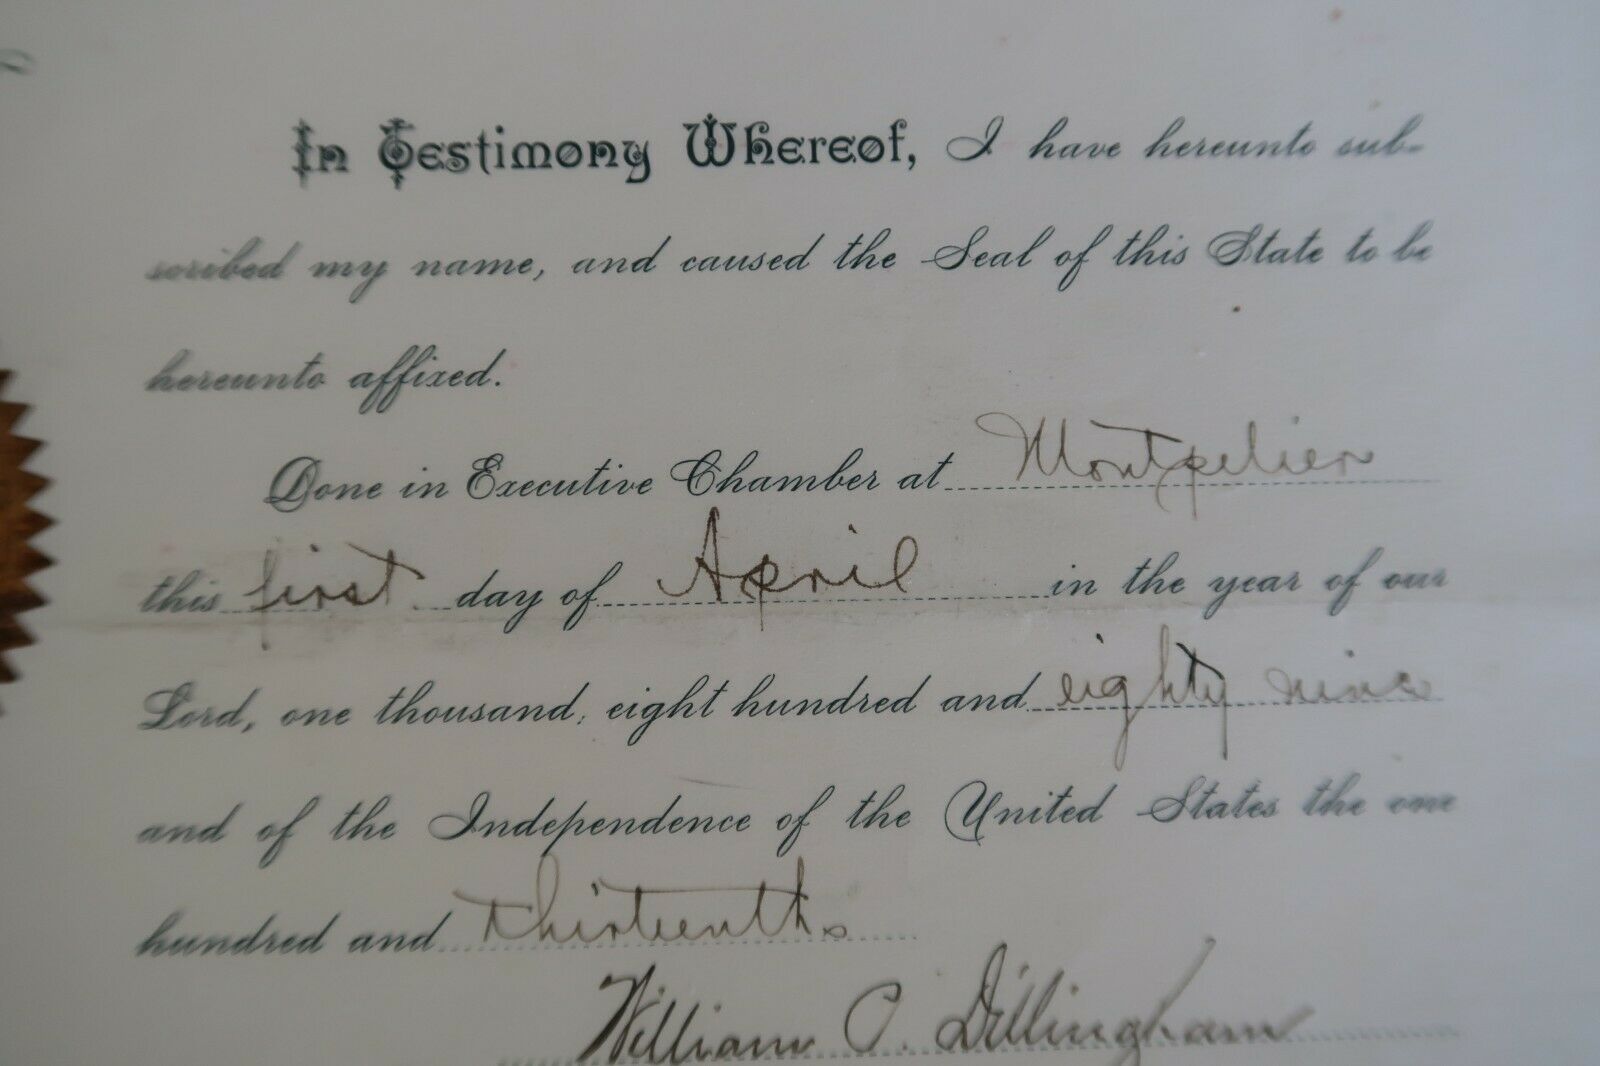 In Testimony Whereof, I have hereunto sub-
scribed my name, and caused the Seal of this State to be
hereunto affixed.
Done in Executive Chamber at Montpelier
this first day of April in the year of our
Lord, one thousand, eight hundred and eighty nine
and of the Independence of the United States the one
hundred and thirteenth.
William P. Dillingham